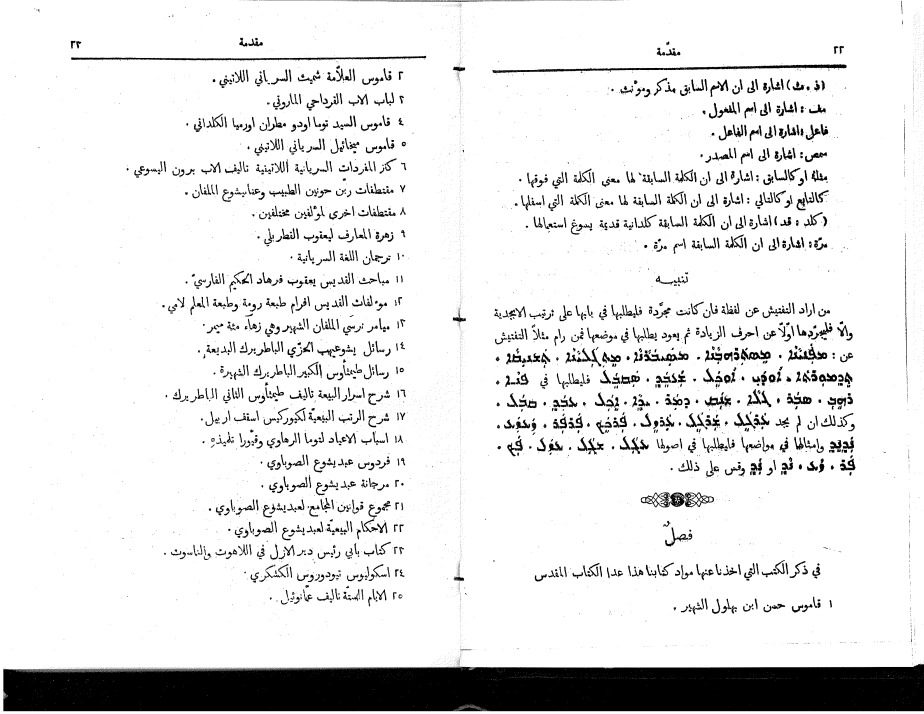 ٢٢
مقدّمة
(ذ . مث) اشارة الى ان الاسم السابق مذكر ومؤنث .
مف : اشارة الى اسم المفعول .
فاعل : اشارة الى اسم الفاعل .
مص : اشارة الى اسم المصدر .
مثلهُ او كالسابق : اشارة الى ان الكلمة السابقة لها معنى الكلمة التي فوقها .
كالتابع او كالتالي : اشارة الى ان الكلمة السابقة لها معنى الكلمة التي اسفلها .
(كلد : قد) اشارة الى ان الكلمة السابقة كلدانية قديمة يسوغ استعمالها .
مرّة : اشارة الى ان الكلمة السابقة اسم مرّة .
تنبيه
من اراد التفتيش عن لفظة فان كانت مجرّدة فليطلبها في بابها على ترتيب الابجدية
والّا فليجرّدها اوّلاً عن احرف الزيادة ثم يعود يطلبها في موضعها فمن رام مثلاً التفتيش
عن :
فليطلبها في
وكذلك ان لم يجد
وامثالها في مواضعها فليطلبها في اصولها
او وقس على ذلك .
فصلٌ
في ذكر الكتب التي اخذنا عنها مواد كتابنا هذا عدا الكتاب المقدس
١ قاموس حسن ابن بهلول الشهير .
مقدمة
٢٣
٢ قاموس العلّامة شميث السرياني اللاتيني .
٣ لباب الاب القرداحي الماروني .
٤ قاموس السيد توما اودو مطران اورميا الكلداني .
٥ قاموس ميخائيل السرياني اللاتيني .
٦ كنز المفردات السريانية اللاتينية تاليف الاب برون اليسوعي .
٧ مقتطفات ربن حونين الطبيب وعنانيشوع الملفان .
٨ مقتطفات اخرى لمؤلفين مختلفين .
٩ زهرة المعارف ليعقوب القطربلي .
١٠ ترجمان اللغة السريانية .
١١ مباحث القديس يعقوب فرهاد الحكيم الفارسيّ .
١٢ مؤلفات القديس افرام طبعة رومة وطبعة المعلم لامي .
١٣ ميامر نرسَي الملفان الشهير وهي زهآء مئة ميمر .
١٤ رسائل يشوعيهب الحَزّي الباطريرك البديعة .
١٥ رسائل طيمثأوس الكبير الباطريرك الشهيرة .
١٦ شرح اسرار البيعة تاليف طيمثأوس الثاني الباطريرك .
١٧ شرح الرتب البيعيّة لكيوركيس اسقف اربيل .
١٨ اسباب الاعياد لتوما الرهاوي وقيورا تلميذهِ .
١٩ فردوس عبديشوع الصوباوي .
٢٠ مرجانة عبديشوع الصوباوي .
٢١ مجموع قوانين المجامع لعبديشوع الصوباوي .
٢٢ الاحكام البيعيّة لعبديشوع الصوباوي .
٢٣ كتاب بابي رئيس دير الازل في اللاهوت والناسوت .
٢٤ اسكوليوس تيودوروس الكشكري .
٢٥ الايام الستّة تاليف عمّانوئيل .